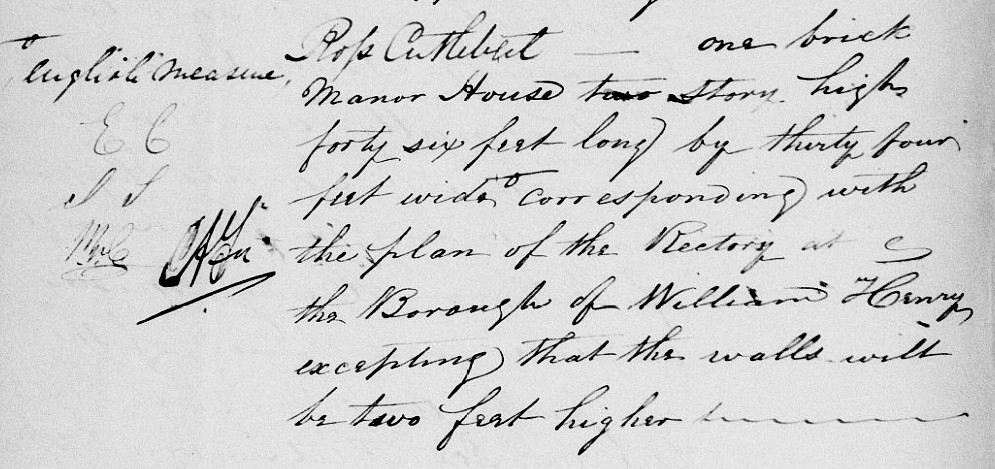 Ross Cuthbert — one brick
Manor House two story high
forty six feet long by thirty four
feet wide ° corresponding with
the plan of the Rectory at
the Borough of William Henry
excepting that the walls will
be two feet higher
° english measure,
E C